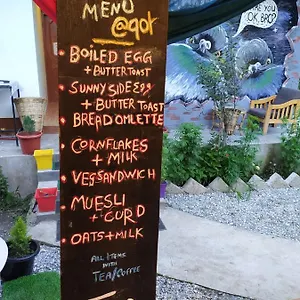 MENU
@90/-
BOILED EGG
+ BUTTER TOAST
SUNNY SIDE EGG
+ BUTTER TOAST
BREAD OMLETTE
CORNFLAKES
+ MILK
VEG SANDWICH
MUESLI
+ CURD
OATS + MILK
ALL ITEMS
WITH
TEA/COFFEE
YOU
OK, BRO?